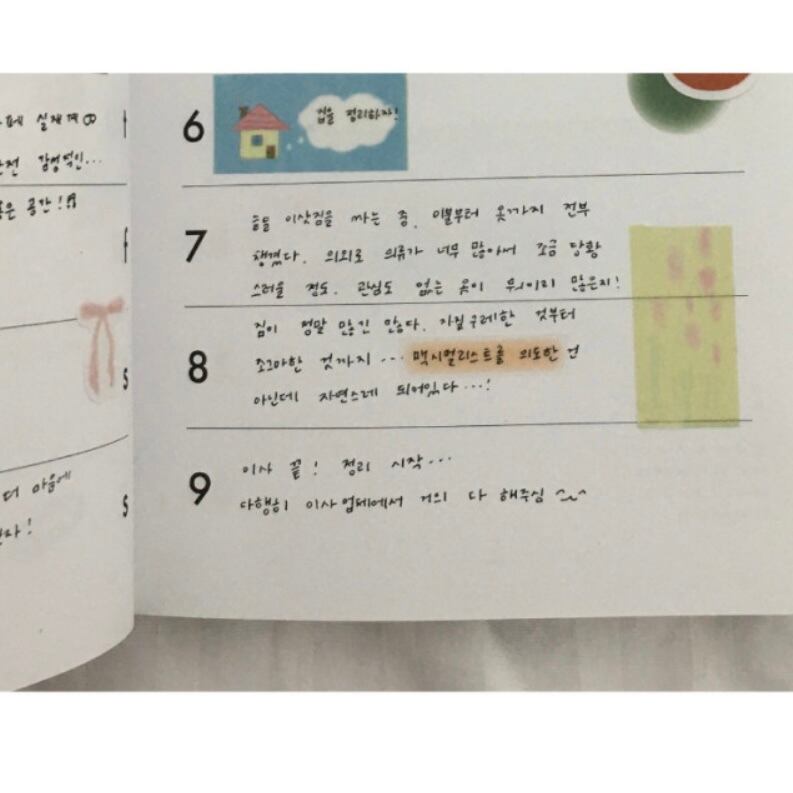 실제계
완전 감성적인...
좋은 공간!
더 마음에
f
s
s
6
집을 정리하자!
7
이삿짐을 싸는 중. 이불부터 옷가지 전부
챙겼다. 의외로 의류가 너무 많아서 조금 당황
스러울 정도. 관심도 없는 옷이 뭐이리 많은지!
8
짐이 정말 많긴 많다. 자질구레한 것부터
조그마한 것까지... 맥시멀리스트를 의도한 건
아닌데 자연스레 되어있다...!
9
이사 끝! 정리 시작...
다행히 이사업체에서 거의 다 해주심 ^~^